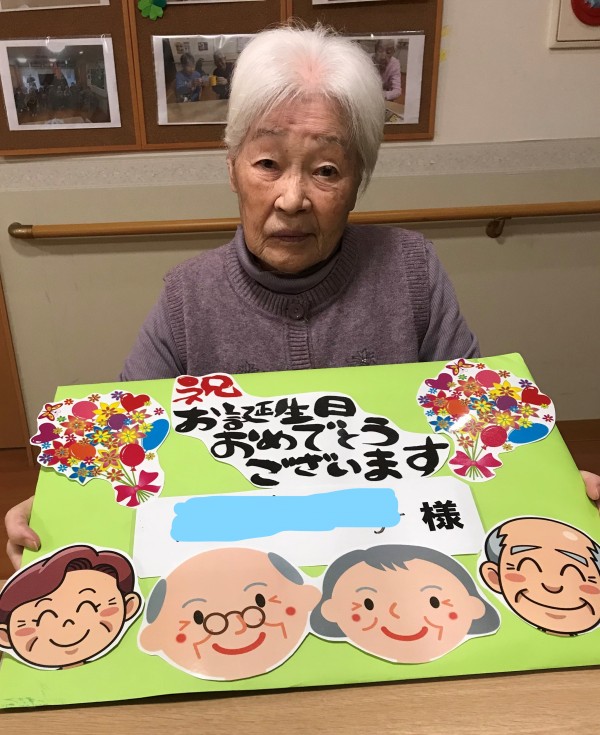 祝
お誕生日
おめでとう
ございます
様